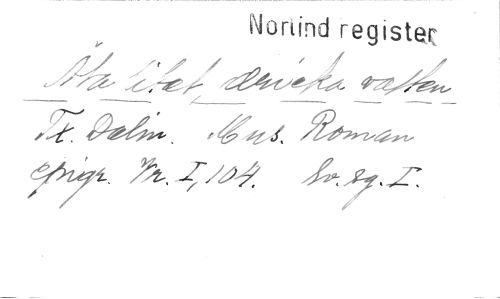 Norlind register
Äta litet, dricka vatten
Tx. Dalin. Mus. Roman
epigr. Nr. I, 104. Sv. sg. I.